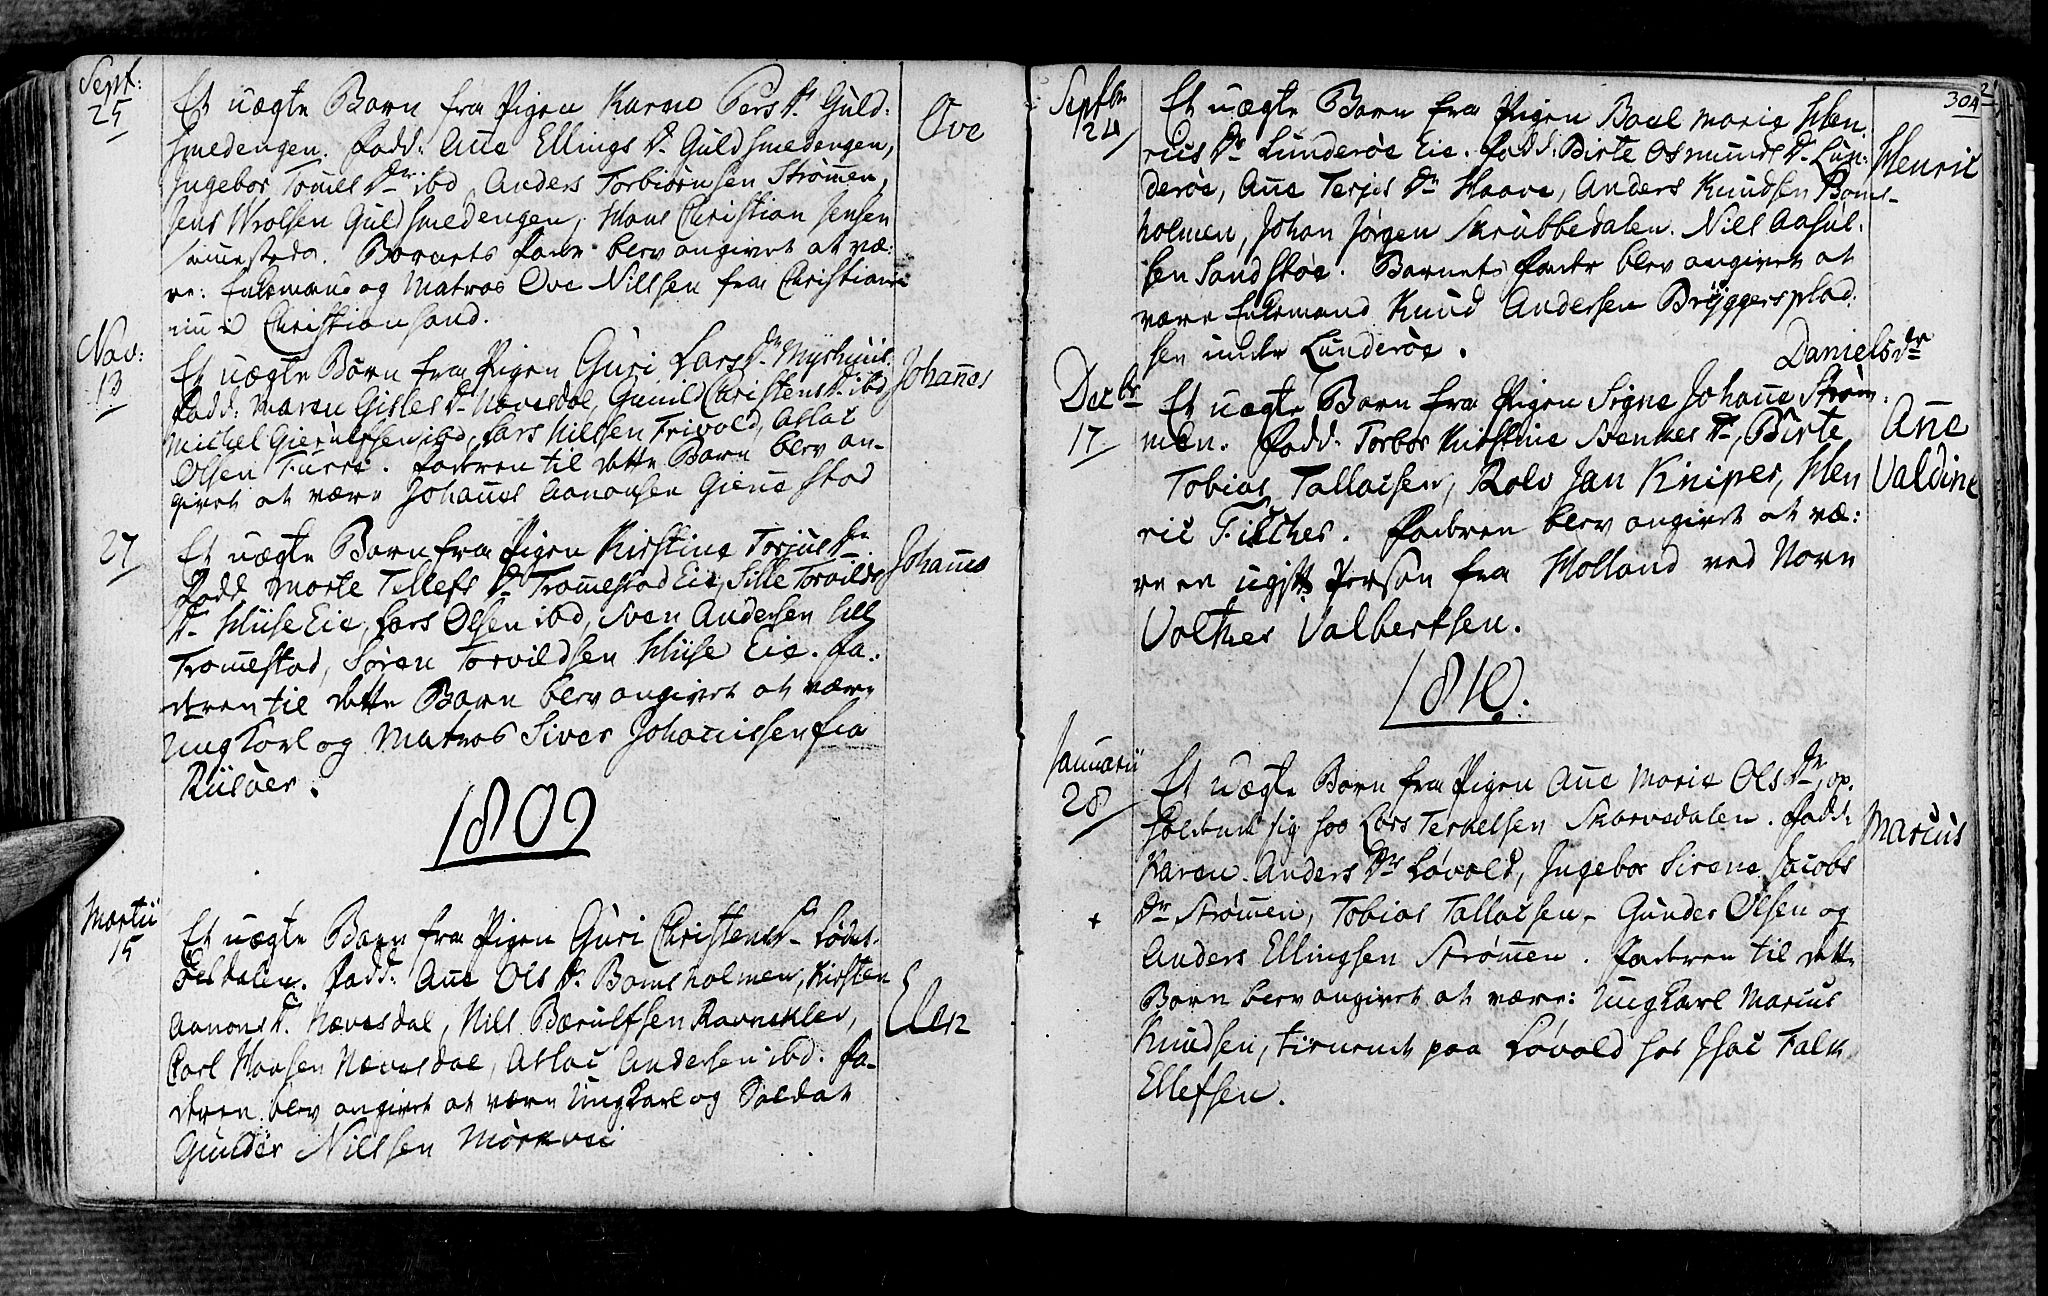 Sept: 25
Et uægte Barn fra Pigen Karen Pers Dr. Guld-
smedengen. Fadd: Añe Ellings Dr. Guldsmedengen,
Ingebor Tomes Dr. ibd Anders Torbiørnsen Strømen,
Jens Wrolsen Guldsmedengen, Hans Christian Jensen
sam̃esteds. Barnets Fader blev angivet at væ:
re: Enkemand og Matros Ove Nillsen fra Christians
Christiansand.
Ove
Nov: 13
Et uægte Barn fra Pigen Guri Lars Dr. Myrhuus.
Fadd: Maren Gisles Dr. Næves dal, Gunild Christens Dr. ibd,
Michel Gierulfsen ibd, Lars Nilsen Frivold, Aslac
Olsen Furre. Faderen til dette Barn blev an-
givet at være Johañes Aanonsen Gieñestad
Johañes
27
Et uægte Barn fra Pigen Kirstine Torjus Dr.
Fadd Marte Tellefs Dr. Trom̃estad Eie, Sille Torvilds
Dr. Huse Eie, Lars Olsen ibd, Sven Andersen
Trom̃estad, Søren Torvildsen Huse Eie. Fa:
deren til dette Barn blev angivet at være
Ungkarl og Matros Siver Johañissen fra
Riisøer.
Johañes
1809
Martii 15
Et uægte Barn fra Pigen Guri Christens Dr. Lødes-
øels dalen. Fadd: Añe Ols Dr. Boms holmen, Kirsten
Aanons Dr. Nævesdal, Nils Bærulfsen Ravneklev,
Carl Hansen Nævesdal, Aslac Andersen ibd. Fa-
deren blev angivet at være Ungkarl og Soldat
Gunder Nillsen Mørkvei
Elen
304
Septbr 24
Et uægte Barn fra Pigen Boel Marie Hen
rics Dr. Lunderøe Eie. Fadd: Birte Osmunds Dr. Lun-
derøe, Añe Terjes Dr. Haave, Anders Knudsen Boms-
holmen, Johan Jørgen Skrubbedalen. Nill Aasul-
sen Sandskøe. Barnets Fader blev angivet at
være Enkemand Knud Andersen Bryggersplad-
sen under Lunderøe.
Henric
Decbr 17
Daniels Dr
Et uægte Barn fra Pigen Signe Johañe Strøm-
men. Fadd. Torbor Kirstine Svennes Dr, Birte
Tobias Tallacsen, Rolv Jan Kniper, Hen
ric Fischer. Faderen blev angivet at væ:
re en ugift Person fra Holland ved Navn
Volkner Valbertsen.
Añe
Valdine
1810.
Januarii 28
Et uægte Barn fra Pigen Añe Marie Ols Dr, op-
holdende sig hos Lars Terkelsen Skarvedalen. Fadd:
Karen Anders Dr Løvold, Ingebor Sirene Jacobs
Dr Strøm̃en, Tobias Tallacsen, Gunder Olsen og
Anders Ellingsen Strøm̃en. Faderen til dette
Barn blev angivet at være: Ungkarl Marcus
Knudsen, tienende paa Løvold hos Isac Falk
Ellefsen.
Marcus
+